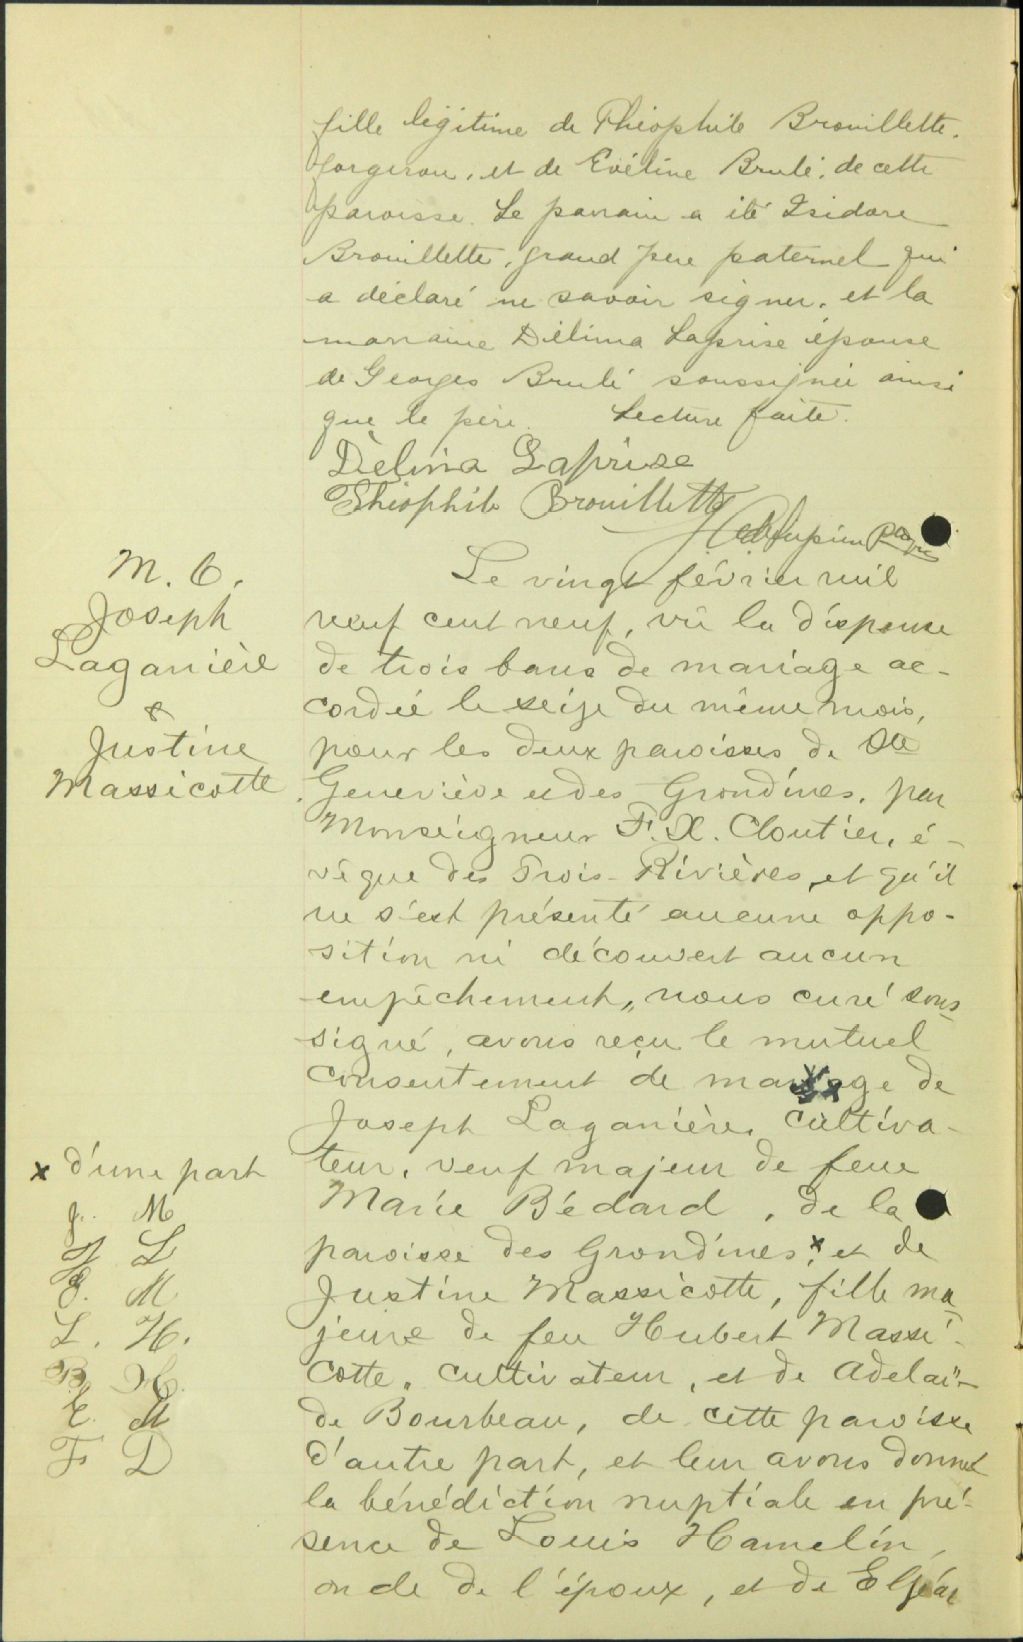 fille légitime de Théophile Brouillette,
forgeron, et de Evéline Brulé, de cette
paroisse. Le parrain a été Isidore
Brouillette, grand père paternel qui
a déclaré ne savoir signer, et la
marraine Délima Laprise épouse
de Georges Brulé soussignée ainsi
que le père. Lecture faite.
Délima Laprise
Théophile Brouillette
M. C.
Joseph
Laganière
&
Justine
Massicotte
Le vingt février mil
neuf cent neuf, vû la dispense
de trois bans de mariage ac-
cordée le seize du même mois,
pour les deux paroisses de Ste
Geneviève et des Grondines, par
Monseigneur F. X. Cloutier, é-
vêque des Trois-Rivières, et qu'il
ne s'est présenté aucune oppo-
sition ni découvert aucun
empêchement, nous curé sous-
signé, avons reçu le mutuel
consentement de mariage de
Joseph Laganière, cultiva-
teur, veuf majeur de feue
Marie Bédard, de la
paroisse des Grondines x, et de
Justine Massicotte, fille ma-
jeure de feu Hubert Massi-
cotte, cultivateur, et de Adelaï-
de Bourbeau, de cette paroisse
d'autre part, et leur avons donné
la bénédiction nuptiale en pré-
sence de Louis Hamelin,
oncle de l'époux, et de Elzéar
x d'une part
J. M
L
J. M
L. H.
B H.
E. M
F D